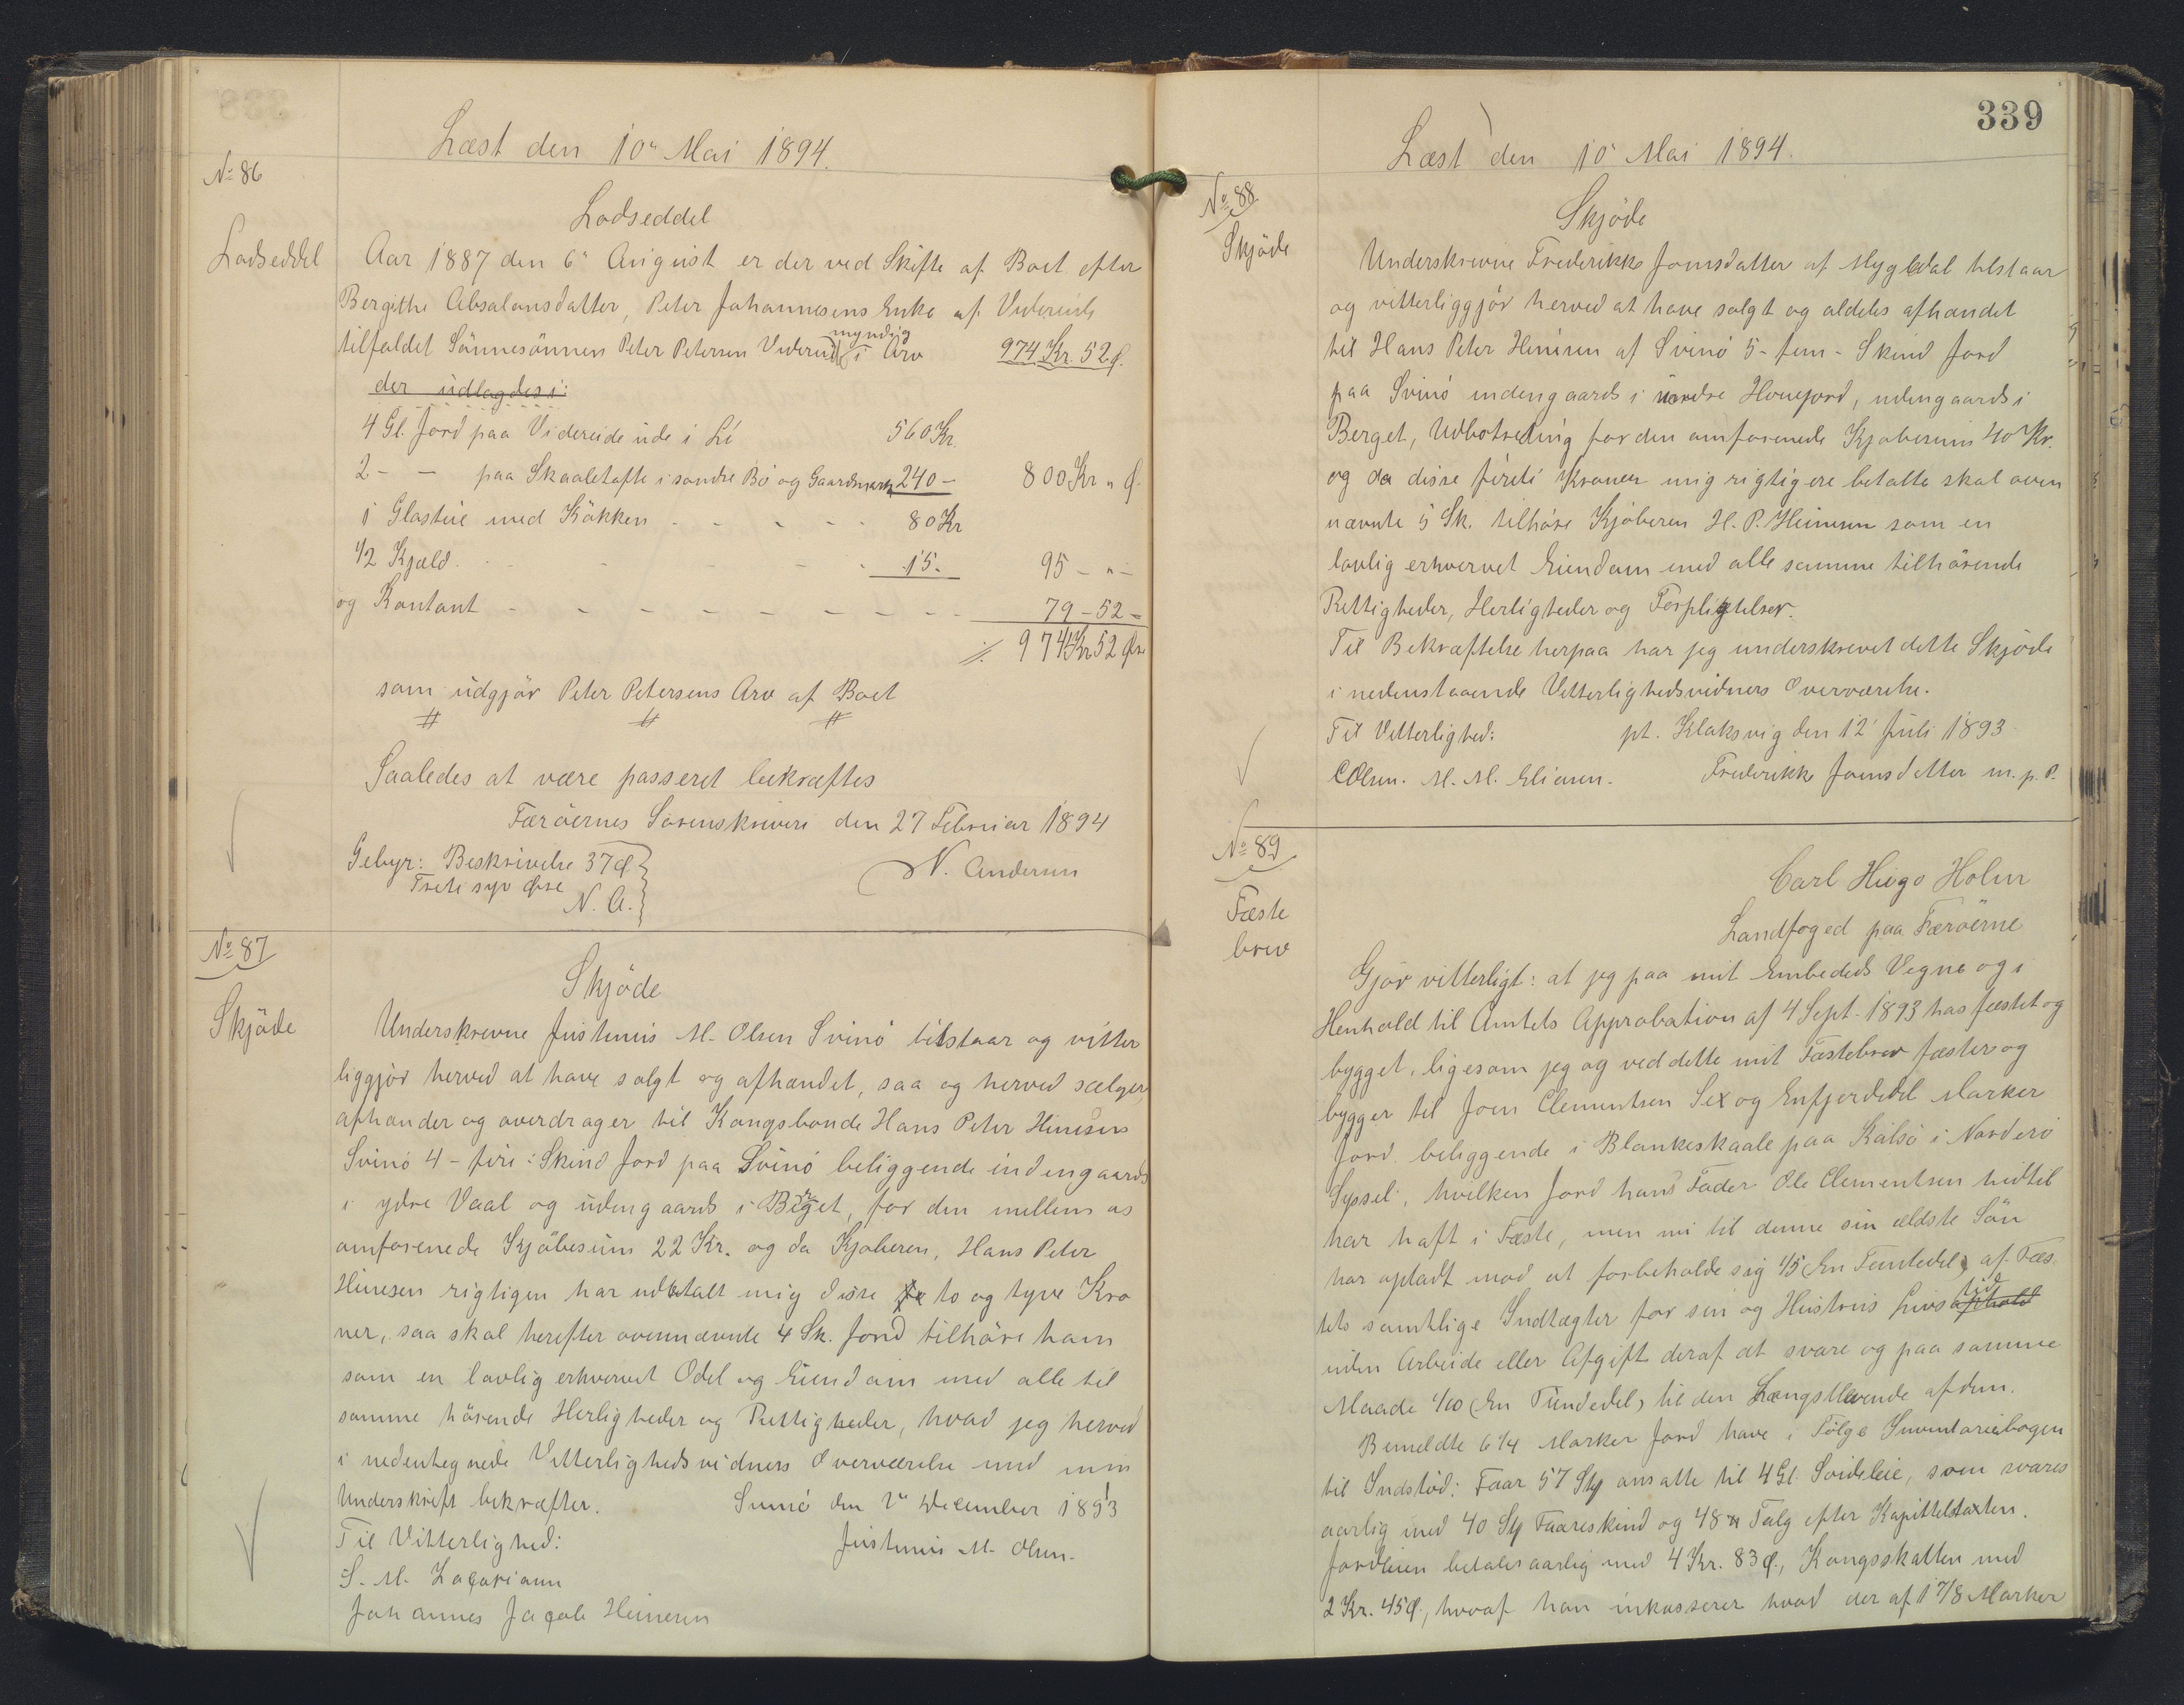 Læst den 10' Mai 1894.
No 86
Lodseddel
Lodseddel
Aar 1887 den 6' August er der ved Skifte af Boet efter
Bergithe Absalonsdatter, Peter Johannesens Enke af Videreide
myndig
tilfaldet Sönnesönnen Peter Petersen Videreide i Arv 974 Kr. 52 Ø.
der udlagdes i:
4 Gl. Jord paa Videreide ude i Li 560 Kr.
2 - - paa Skaaletofte i søndre Bö og Gaardsmark 240 - 800 Kr " Ø.
1 Glastue med Kökken - - - - - 80 Kr
1/2 Kjæld. - - - - 15. - 95 - " -
og Kontant - - - - - - - - 79 - 52 -
./. 974 Kr 52 Øre
som udgjör Peter Petersens Arv af Boet
Saaledes at være passeret bekræftes
Færöernes Sorenskriveri den 27 Februar 1894
Gebyr: Beskrivelse 37 Ø
N. Andersen
Treti syv Øre
N. A.
No 87
Skjöde
Skjöde
Underskrevne Justinus M. Olsen Svinö tilstaar og vitter
liggjör herved at have solgt og afhændet, saa og herved sælger,
afhænder og overdrager til Kongsbonde Hans Peter Heinesen
Svinö 4 - fire: Skind Jord paa Svinö beliggende indengaards
i ydre Vaal og udengaards i Berget, for den mellem os
omforenede Kjöbesum 22 Kr. og da Kjøberen, Hans Peter
Heinesen rigtigen har udbetalt mig disse to og tyve Kro
ner, saa skal herefter ovennævnte 4 Sk. Jord tilhöre ham
som en lovlig erhvervet Odel og Eiendom med alle til
samme hörende Herligheder og Rettigheder, hvad jeg herved
i nedentegnede Vitterlighedsvidners Overværelse med min
Underskrift bekræfter. Svinö den 1' December 1893
Til Vitterlighed: Justinus M. Olsen.
S. M. Zacariasen
Johannes Jacob Heinesen
339
Læst den 10' Mai 1894.
No 88
Skjöde
Skjöde
Underskrevne Frederikke Joensdatter af Mygledal tilstaar
og vitterliggjör herved at have solgt og aldeles afhændet
til Hans Peter Heinesen af Svinö 5 - fem - Skind Jord
paa Svinö indengaards i nordre Hovejord, udengaards i
Berget, Udbotrening for den omforenede Kjøbesum 40 Kr.
og da disse fireti Kroner mig rigtigere betalte skal oven
nævnte 5 Sk. tilhöre Kjøberen H. P. Heinesen som en
lovlig erhvervet Eiendom med alle samme tilhörende
Rettigheder, Herligheder og Forpligtelser.
Til Bekræftelse herpaa har jeg underskrevet dette Skjöde
i nedenstaaende Vitterlighedsvidners Overværelse.
Til Vitterlighed: pt. Klaksvig den 12' Juli 1893
C Olsen. M. M. Eliasen. Frederikke Joensdatter m. p. P.
No 89
Fæste
brev
Carl Hugo Holm
Landfoged paa Færöerne
Gjör vitterligt: at jeg paa mit Embeds Vegne og i
Henhold til Amtets Approbation af 4 Sept. 1893 has fæstet og
bygget, ligesom jeg og ved dette mit Fæstebrev fæster og
bygger til Joen Clementsen Sex og Enfjerdedel Marker
Jord beliggende i Blankeskaale paa Kalsö i Norderö
Syssel, hvilken Jord hans Fader Ole Clementsen hidtil
har haft i Fæste, men nu til denne sin ældste Sön
har opladt mod at forbeholde sig 1/5 (En Femtedel) af Fæs
tets samtlige Indtægter for sin og Hustrus Livs ophold tid
uden Arbeide eller Afgift deraf at svare og paa samme
Maade 1/10 (En Tiendedel) til den Længstlevende af dem.
Bemeldte 6 1/4 Marker Jord have i Følge Inventariebogen
til Indstöd: Faar 57 Stk ansatte til 4 Gl. Soideleie, som svares
aarlig med 40 Stk Faareskind og 48 ℔ Talg efter Kapittelstaxten.
Jordleien betales aarlig med 4 Kr. 83 Ø., Kongsskatten med
2 Kr. 45 Ø, hvoraf han inkasserer hvad der af 1 7/8 Marker